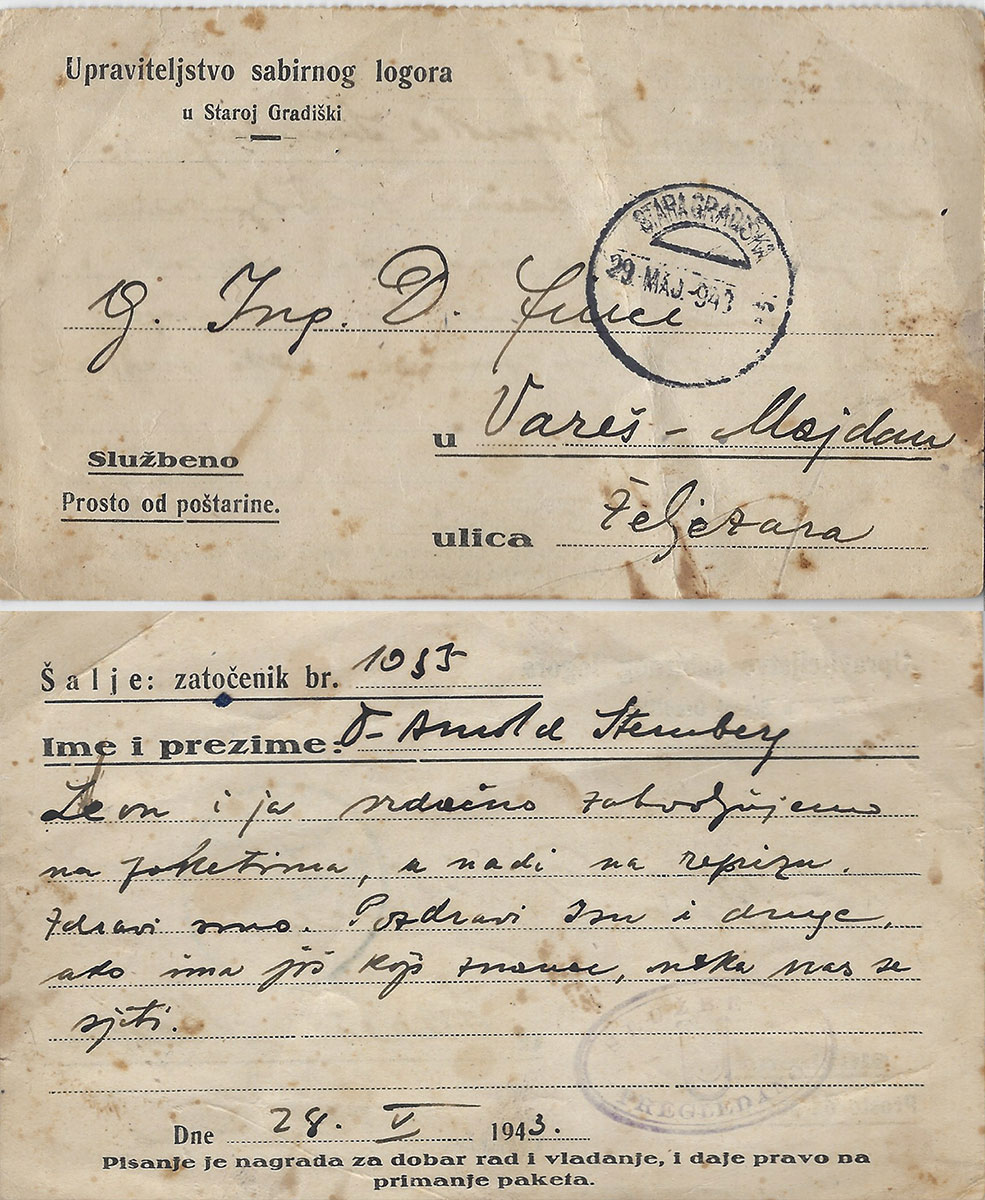 Upraviteljstvo sabirnog logora
u Staroj Gradiški
STARA GRADIŠKA
29. MAJ. 943
G. Ing. D. Finci
u Vareš - Majdan
Službeno
Prosto od poštarine.
ulica Željezara
Šalje: zatočenik br. 1055
Ime i prezime: Dr Arnold Sternberg
Leon i ja srdačno zahvaljujemo
na paketima, u nadi na reprizu.
Zdravi smo. Pozdravi Isu i druge,
ako ima još koji znanac, neka nas se
sjeti.
PREGLEDANO
Dne 28. V 1943.
Pisanje je nagrada za dobar rad i vladanje, i daje pravo na
primanje paketa.